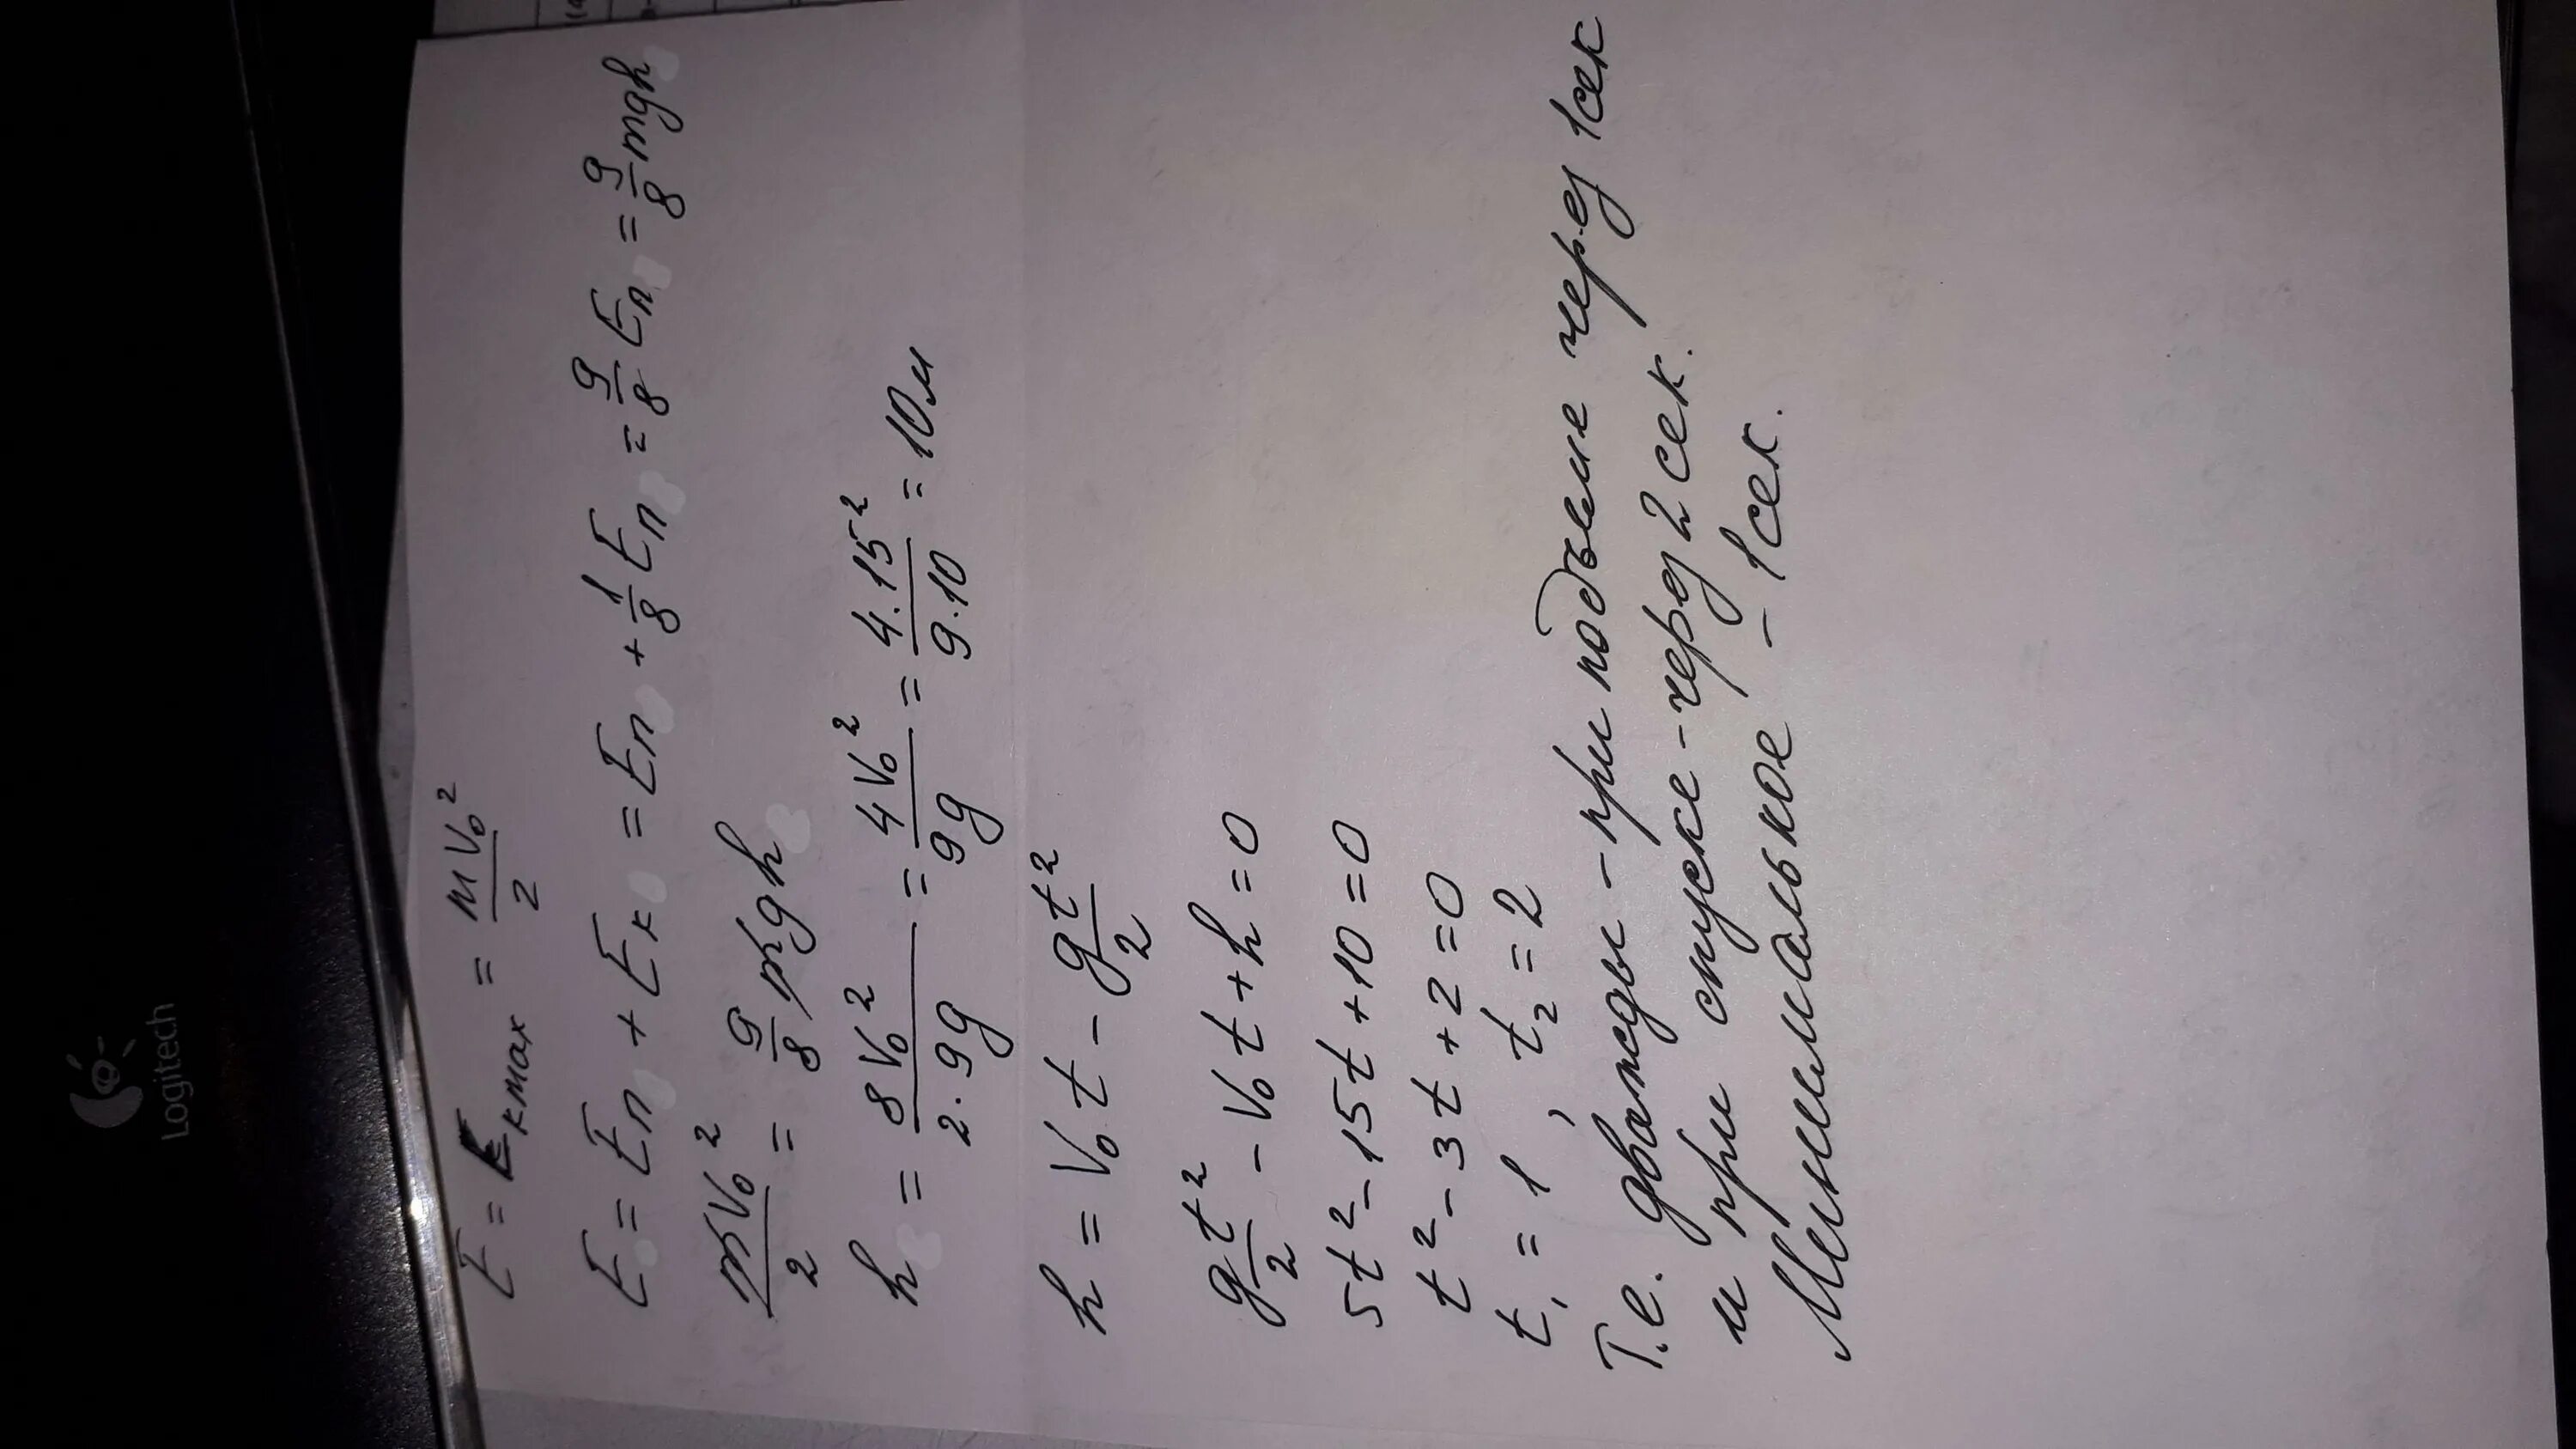 Logitech
E = Eкmax = mV₀²/2
E = Eп + Eк = Eп + 1/8 Eп = 9/8 Eп = 9/8 mgh
mV₀²/2 = 9/8 mgh
h = 8V₀²/2·9g = 4V₀²/9g = 4·15²/9·10 = 10м
h = V₀t - gt²/2
gt²/2 - V₀t + h = 0
5t² - 15t + 10 = 0
t² - 3t + 2 = 0
t₁ = 1, t₂ = 2
Т.е. дважды - при подъеме через 1сек
и при спуске - через 2 сек.
Минимальное - 1сек.